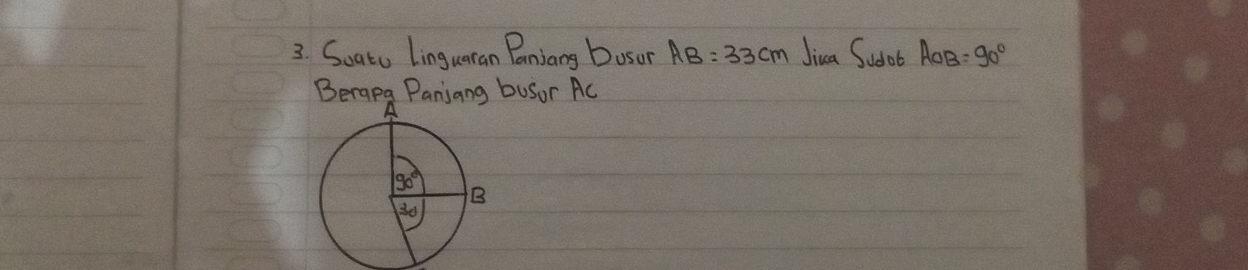 3. Suatu Lingkaran Panjang busur AB = 33 cm Jika Sudut AOB = 90°
Berapa Panjang busur AC
A
90°
B
30